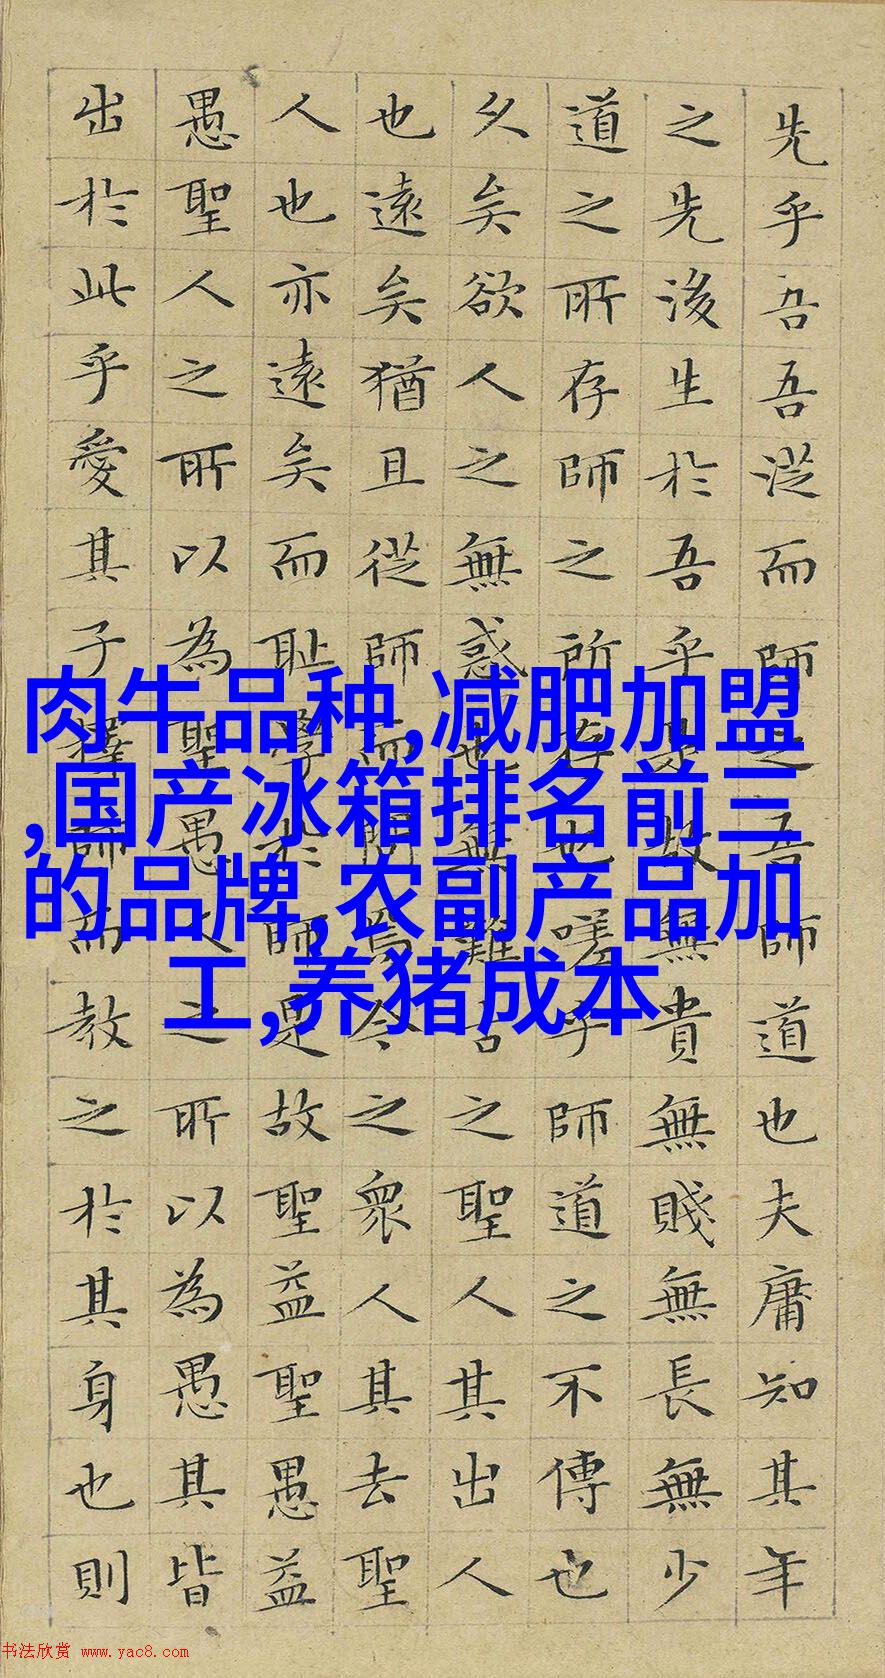 先乎吾吾從而師之吾師道也夫庸知其年
之先後生於吾乎是故無貴無賤無長無少
道之所存師之所存也嗟乎師道之不傳也
久矣欲人之無惑也無難古之聖人其出人
也遠矣猶且從師而問焉今之眾人其去聖
人也亦遠矣而耻學於師是故聖益聖愚益
愚聖人之所以為聖愚人之所以為愚其皆
出於此乎愛其子擇師而教之於其身也則
肉牛品种,减肥加盟
,国产冰箱排名前三
的品牌,农副产品加
工,养猪成本
书法欣赏 www.yac8.com